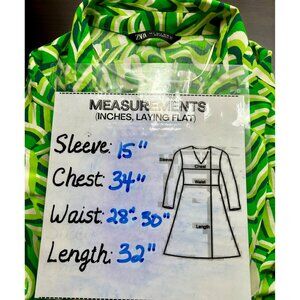 ZARA
MEASUREMENTS
(INCHES, LAYING FLAT)
Sleeve: 15"
Chest: 34"
Waist: 28"-30"
Length: 32"
Chest
Waist
Length